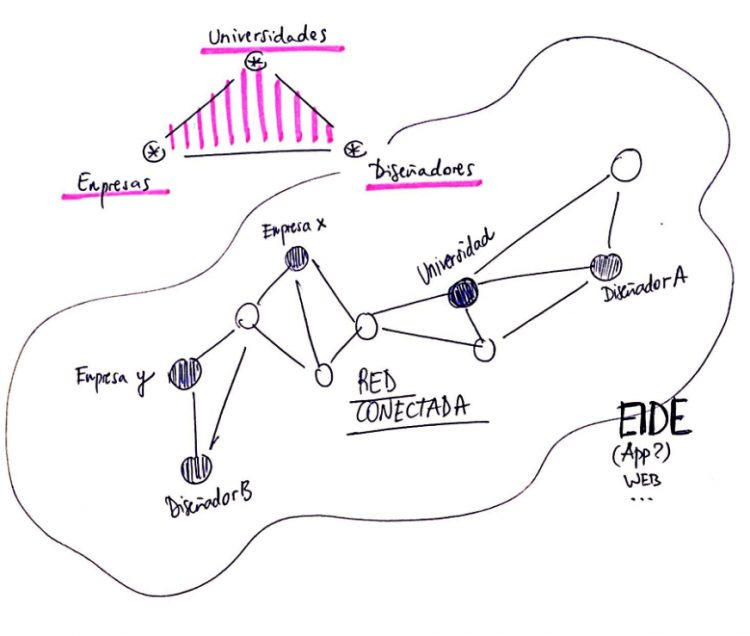 Universidades
Empresas
Diseñadores
Empresa x
Universidad
Diseñador A
Empresa y
RED
CONECTADA
Diseñador B
EIDE
(App?)
WEB
...